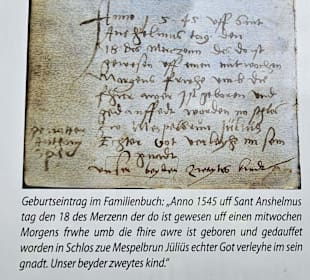 Anno 1545 uff Sant
Anshelmus tag den
18 des Merzenn der do ist
gewesen uff einen mitwochen
Morgens frwhe umb die
fhire awre ist geboren und
gedauffett worden in schlos
zue Mespelbrun Jülius
Echter Got verleyhe im sein
gnadt
unser beyder zweytes kindt
Geburtseintrag im Familienbuch: „Anno 1545 uff Sant Anshelmus
tag den 18 des Merzenn der do ist gewesen uff einen mitwochen
Morgens frwhe umb die fhire awre ist geboren und gedauffet
worden in Schlos zue Mespelbrun Jüliüs echter Got verleyhe im sein
gnadt. Unser beyder zweytes kind.“